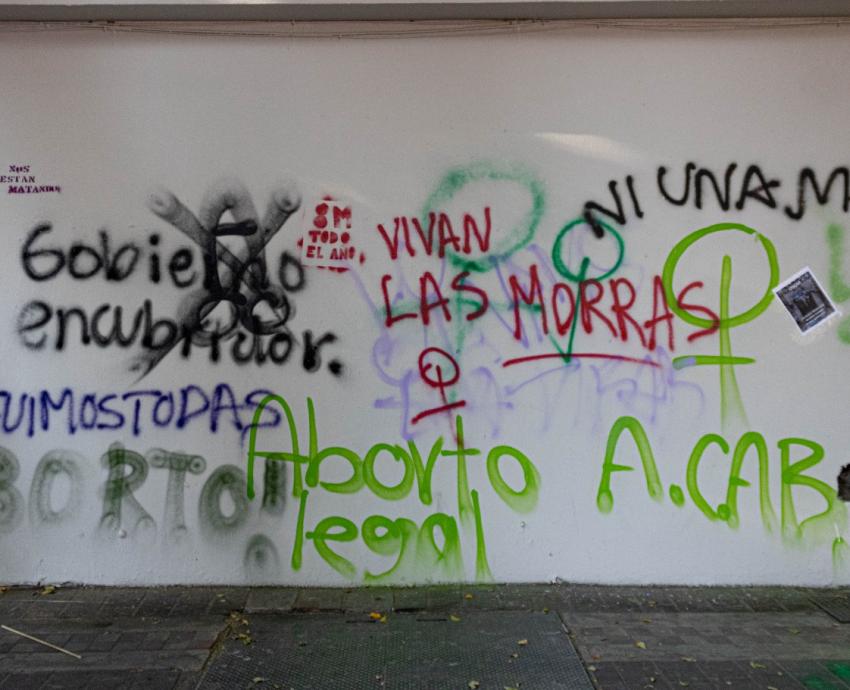 NOS
ESTAN
MATANDO
Gobierno
encubridor.
8M
TODO
EL AÑO
VIVAN
LAS MORRAS
NI UNA M
UIMOS TODAS
BORTO!
Aborto
legal
A.C.AB